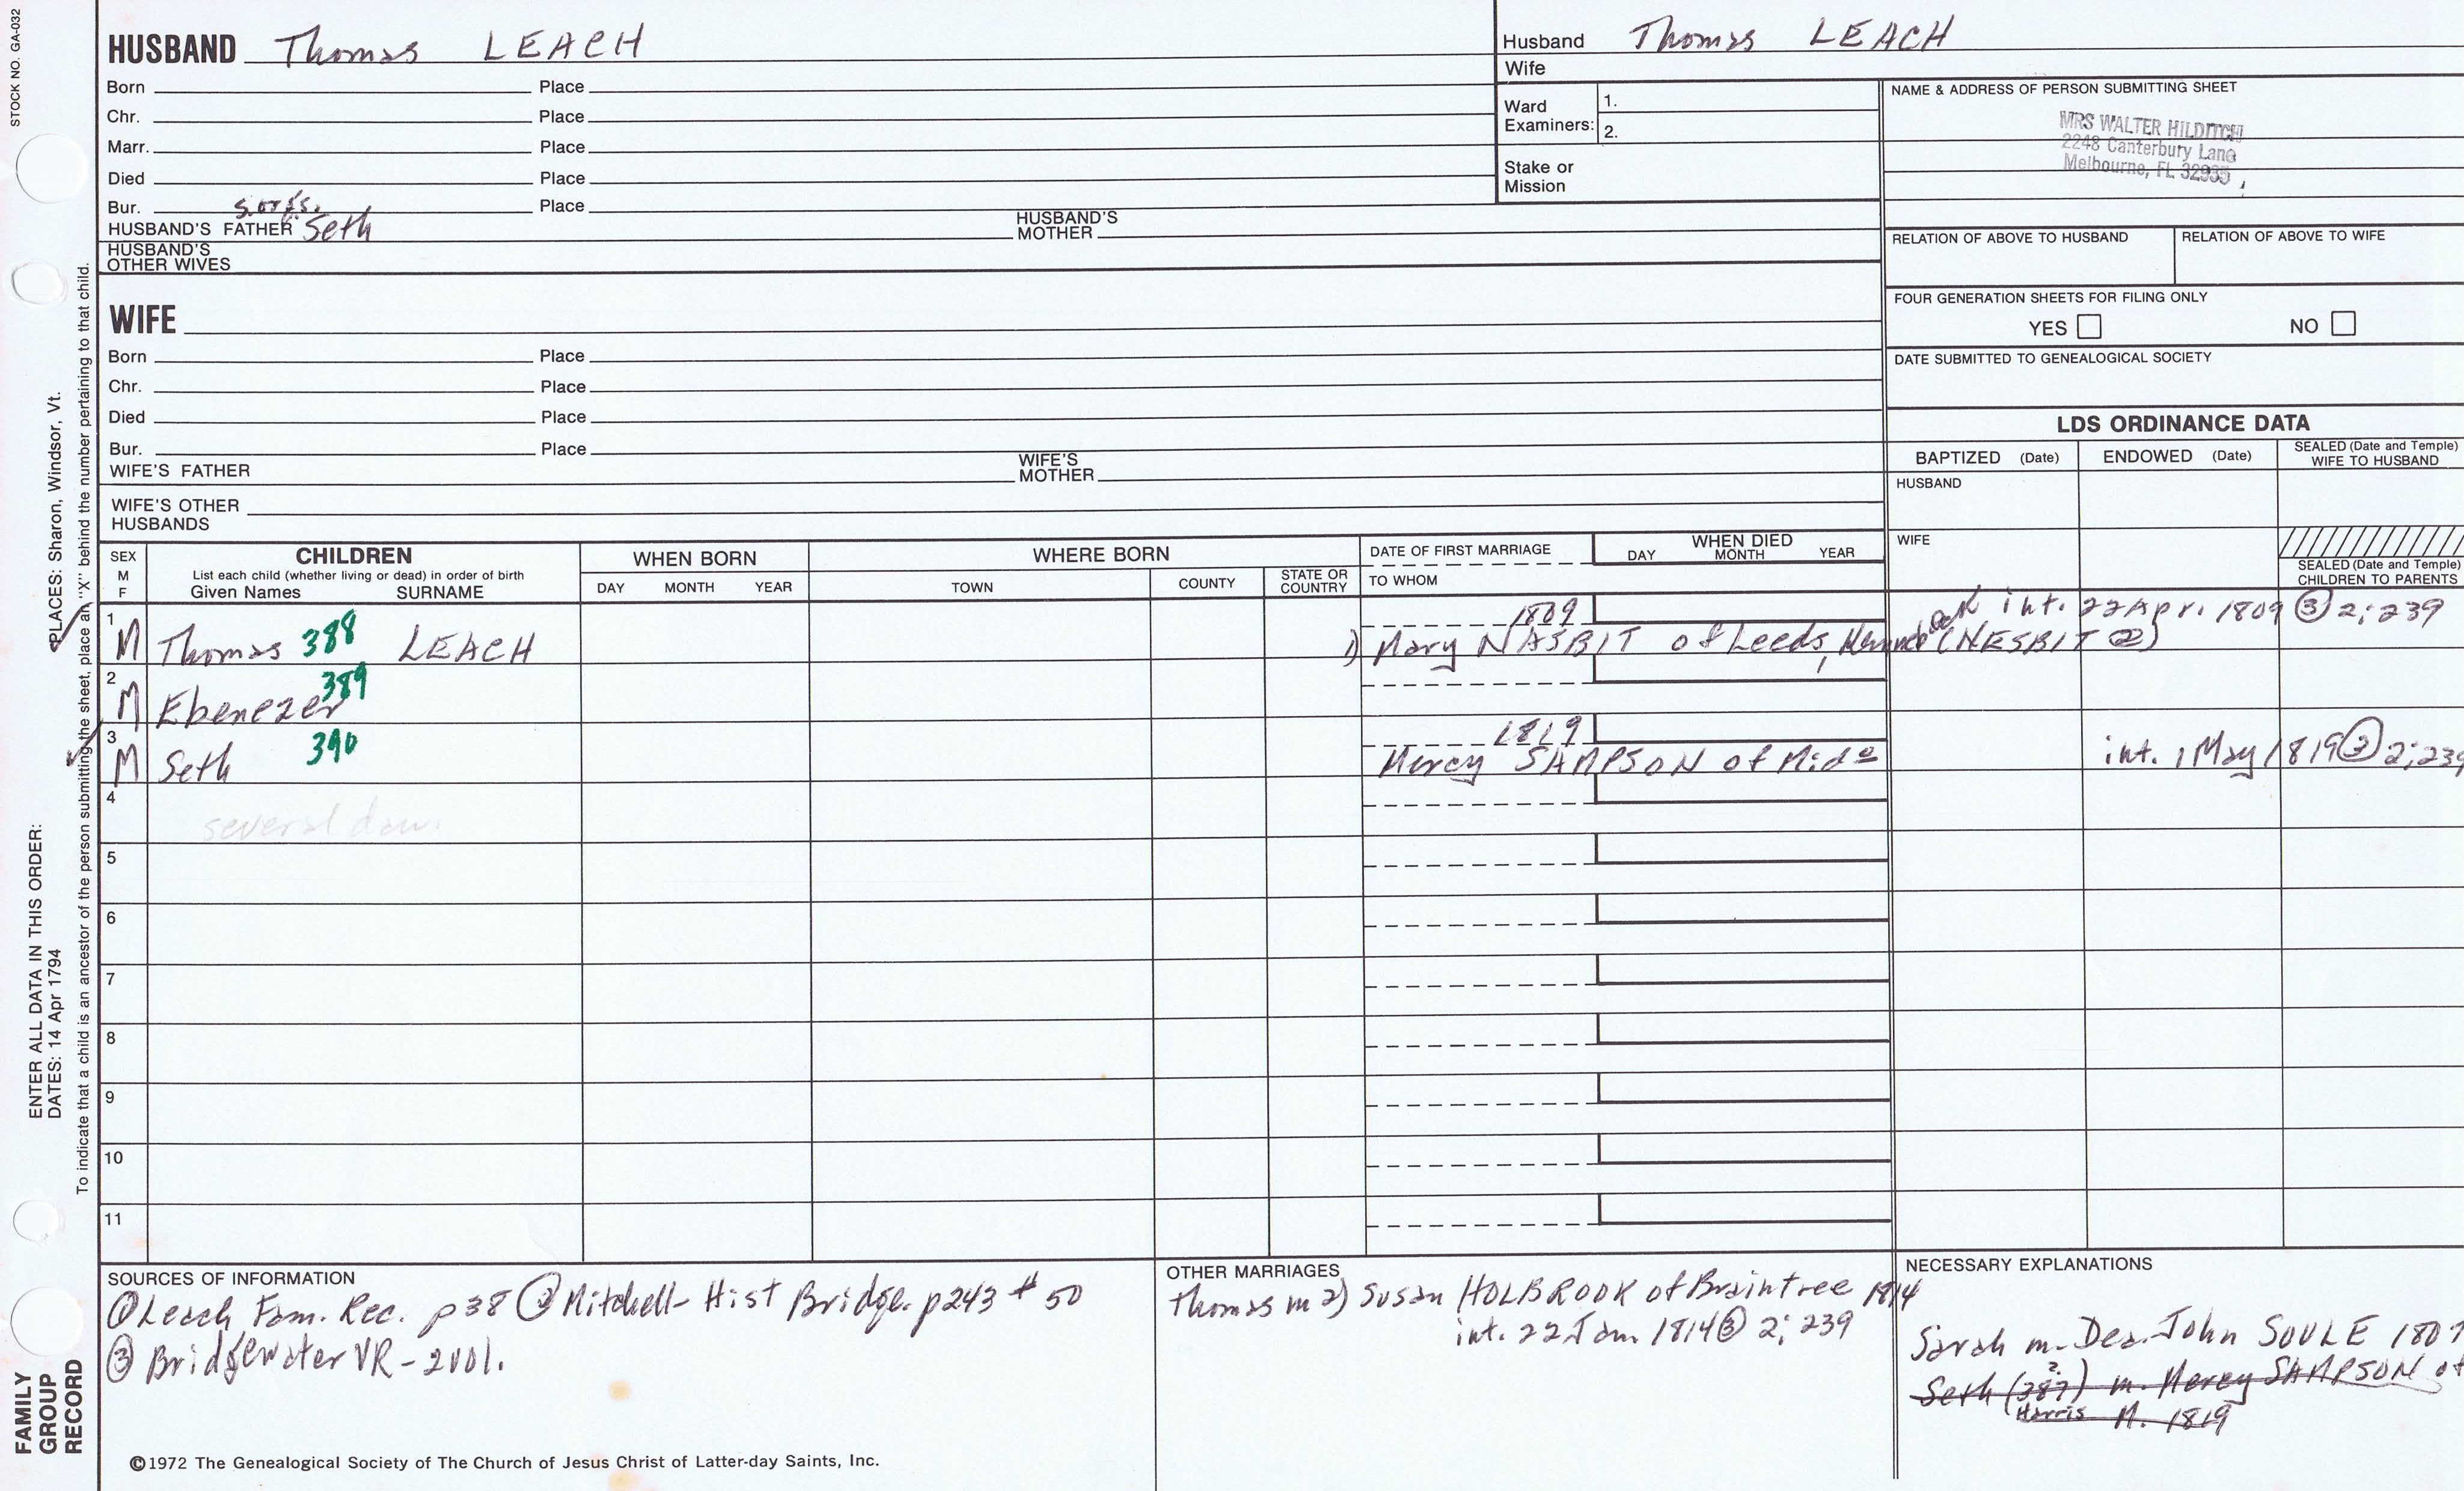 STOCK NO. GA-032
HUSBAND Thomas LEACH
Born Place
Chr. Place
Marr. Place
Died Place
Bur. Place
s. of s.
HUSBAND'S FATHER Seth HUSBAND'S MOTHER
HUSBAND'S OTHER WIVES
WIFE
Born Place
Chr. Place
Died Place
Bur. Place
WIFE'S FATHER WIFE'S MOTHER
WIFE'S OTHER HUSBANDS
Husband Thomas LEACH
Wife
Ward Examiners: 1.
2.
Stake or Mission
NAME & ADDRESS OF PERSON SUBMITTING SHEET
MRS WALTER HILDITCH
2248 Canterbury Lane
Melbourne, FL 32935
RELATION OF ABOVE TO HUSBAND RELATION OF ABOVE TO WIFE
FOUR GENERATION SHEETS FOR FILING ONLY
YES NO
DATE SUBMITTED TO GENEALOGICAL SOCIETY
LDS ORDINANCE DATA
BAPTIZED (Date) ENDOWED (Date) SEALED (Date and Temple) WIFE TO HUSBAND
HUSBAND
WIFE
SEALED (Date and Temple) CHILDREN TO PARENTS
SEX M F
CHILDREN
List each child (whether living or dead) in order of birth
Given Names SURNAME
WHEN BORN
DAY MONTH YEAR
WHERE BORN
TOWN COUNTY STATE OR COUNTRY
DATE OF FIRST MARRIAGE
TO WHOM
WHEN DIED
DAY MONTH YEAR
1 M Thomas 388 LEACH 1809 int. 22 Apr. 1809 ③ 2; 239
1) Mary NASBIT of Leeds, (NESBIT ②)
2 M Ebenezer 389
3 M Seth 390 1819
Mercy SAMPSON of Mido int. 1 May 1819 ③ 2; 239
4 several dau.
5
6
7
8
9
10
11
SOURCES OF INFORMATION
① Leach Fam. Rec. p38 ② Mitchell- Hist Bridge. p243 # 50
③ Bridgewater VR - 2vol.
OTHER MARRIAGES
Thomas m 2) Susan HOLBROOK of Braintree 1814
int. 22 Jan. 1814 ③ 2; 239
NECESSARY EXPLANATIONS
Sarah m. Dea. John SOULE 1807
Seth (387?) m. Mercy SAMPSON of
Harris M. 1819
©1972 The Genealogical Society of The Church of Jesus Christ of Latter-day Saints, Inc.
FAMILY GROUP RECORD
ENTER ALL DATA IN THIS ORDER:
DATES: 14 Apr 1794
PLACES: Sharon, Windsor, Vt.
To indicate that a child is an ancestor of the person submitting the sheet, place an "X" behind the number pertaining to that child.